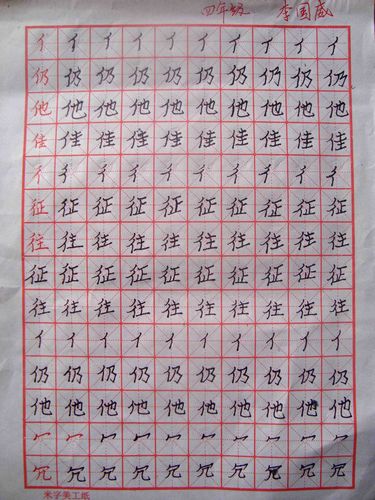 四年级 李国威
亻亻亻亻亻亻亻亻亻亻
仍仍仍仍仍仍仍仍仍仍
他他他他他他他他他他
佳佳佳佳佳佳佳佳佳佳
彳彳彳彳彳彳彳彳彳彳
征征征征征征征征征征
往往往往往往往往往往
征征征征征征征征征征
往往往往往往往往往往
亻亻亻亻亻亻亻亻亻亻
仍仍仍仍仍仍仍仍仍仍
他他他他他他他他他他
冖冖冖冖冖冖冖冖冖冖
冗冗冗冗冗冗冗冗冗冗
米字美工纸